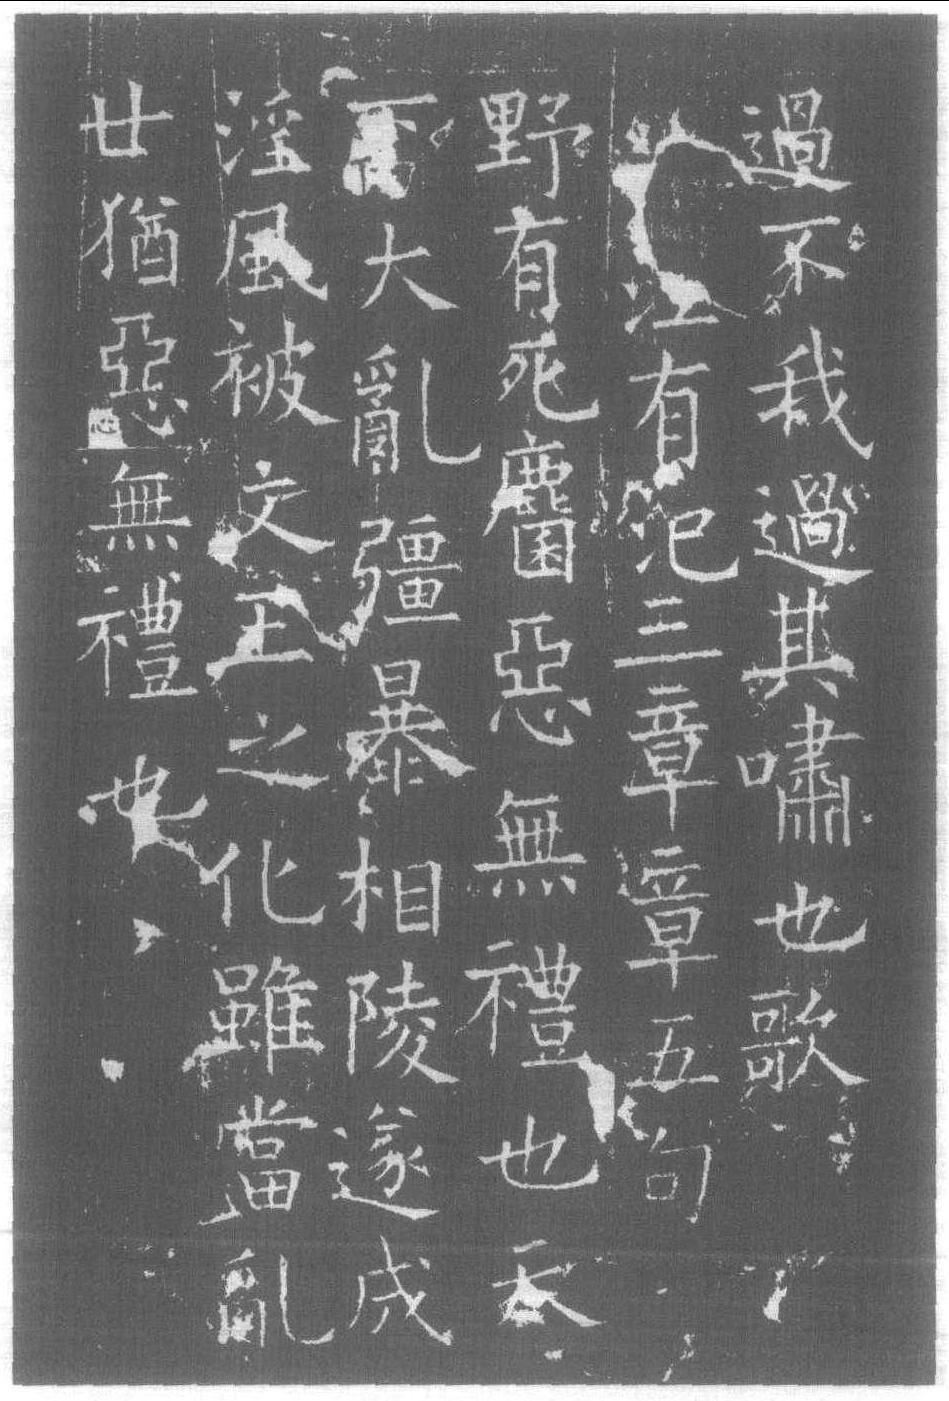 過不我過其嘯也歌
江有汜三章章五句
野有死麕惡無禮也天
下大亂彊暴相陵遂成
淫風被文王之化雖當亂
廿猶惡無禮也